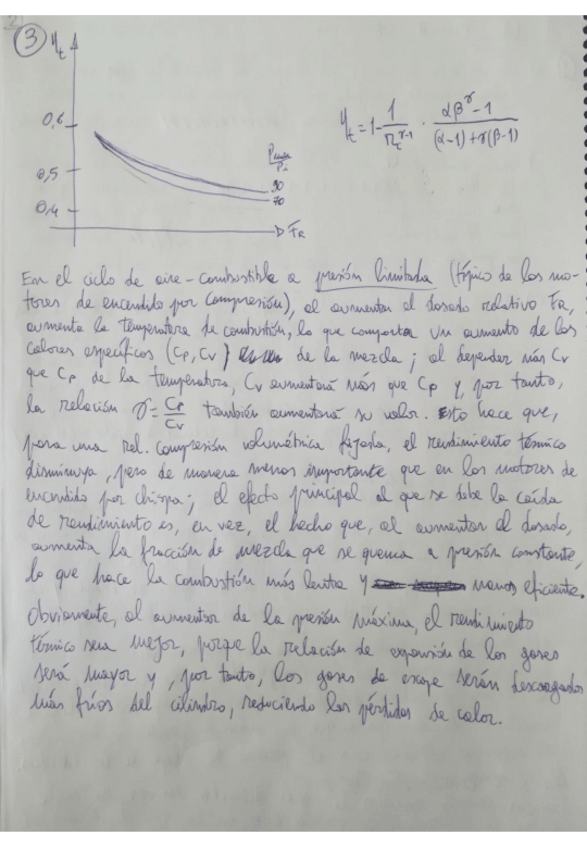 2
3 ηt
0,6
0,5
0,4
Pmáx/Pi
90
70
FR
ηt = 1 - 1/rc^(γ-1) · (αβ^γ - 1)/((α-1)+γ(β-1))
En el ciclo de aire-combustible a presión limitada (típico de los mo-
tores de encendido por compresión), al aumentar el dosado relativo FR,
aumenta la temperatura de combustión, lo que comporta un aumento de los
calores específicos (Cp, Cv) de la mezcla; al depender más Cv
que Cp de la temperatura, Cv aumentará más que Cp y, por tanto,
la relación γ = Cp/Cv también aumentará su valor. Esto hace que,
para una rel. compresión volumétrica fijada, el rendimiento térmico
disminuya, pero de manera menos importante que en los motores de
encendido por chispa; el efecto principal al que se debe la caída
de rendimiento es, en vez, el hecho que, al aumentar el dosado,
aumenta la fracción de mezcla que se quema a presión constante,
lo que hace la combustión más lenta y menos eficiente.
Obviamente, al aumentar de la presión máxima, el rendimiento
térmico sera mejor, porque la relación de expansión de los gases
será mayor y, por tanto, los gases de escape serán descargados
más fríos del cilindro, reduciendo las pérdidas de calor.